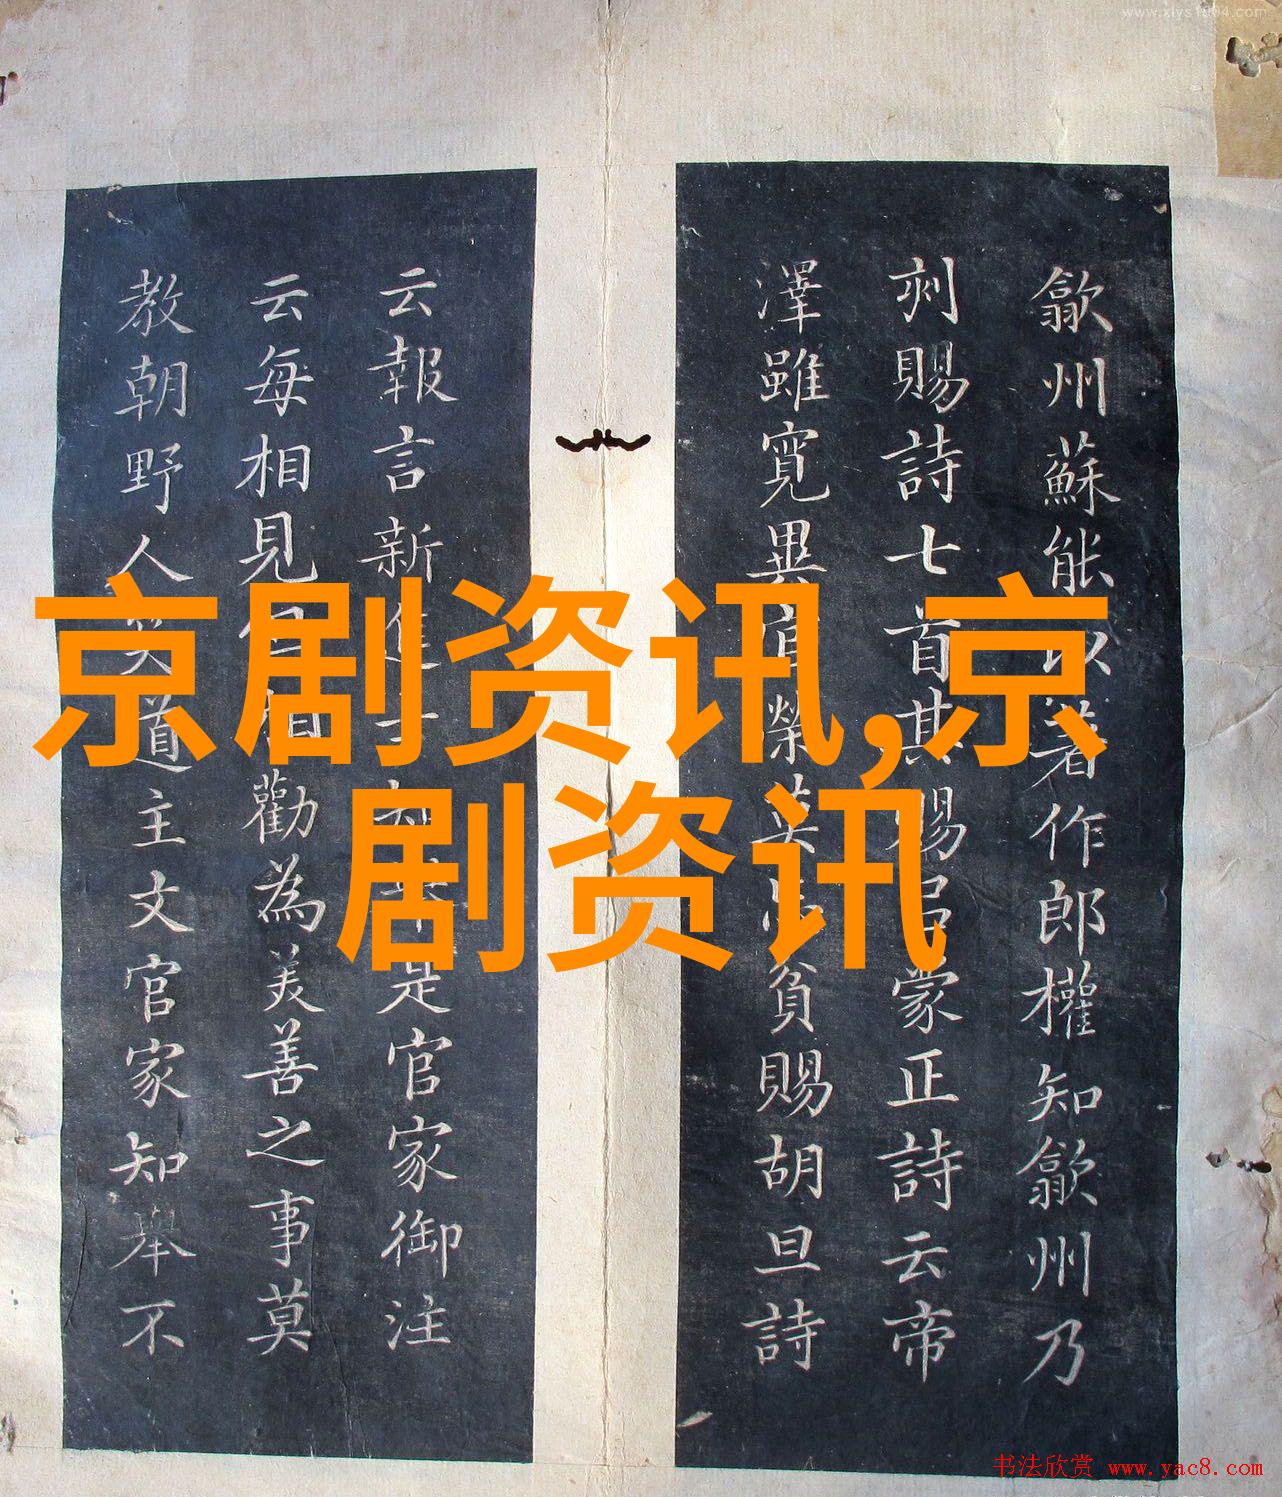 www.xlys1904.com
歙州蘇能以著作郎權知歙州乃
刻賜詩七首其賜呂蒙正詩云帝
澤雖寬異官榮莫忘貧賜胡旦詩
云報言新進士知舉是官家御注
云每相見但相勸為美善之事莫
教朝野人笑道主文官家知舉不
京剧资讯,京
剧资讯
书法欣赏 www.yac8.com